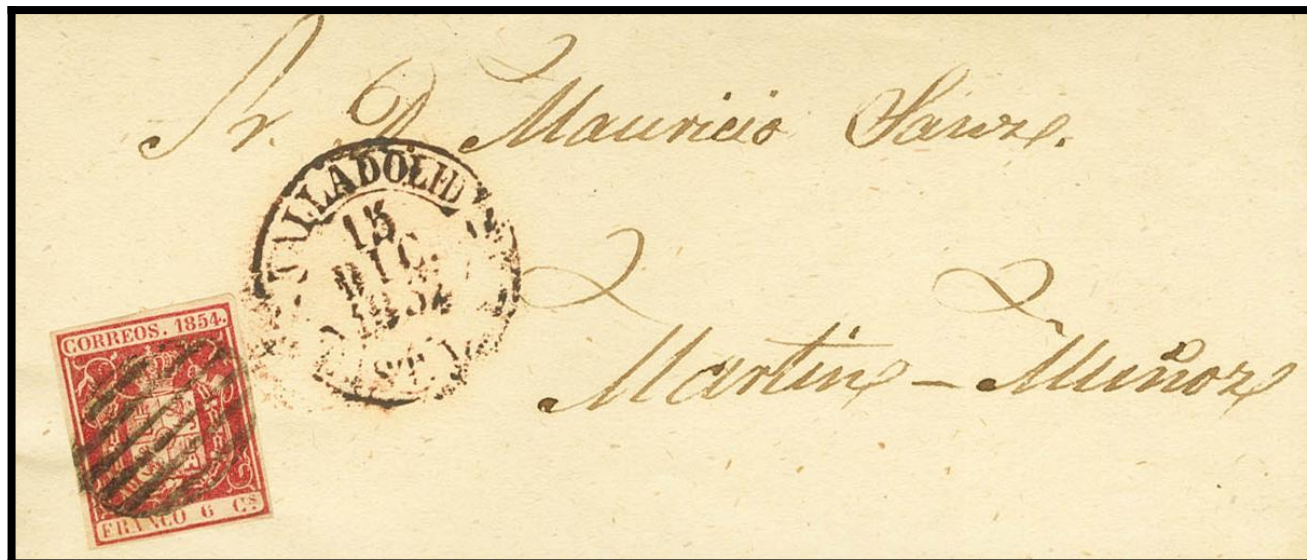 Sr. D. Mauricio Sanz.
VALLADOLID
15
DIC.
1854
Martin - Muñoz
CORREOS. 1854.
FRANCO 6 Cs